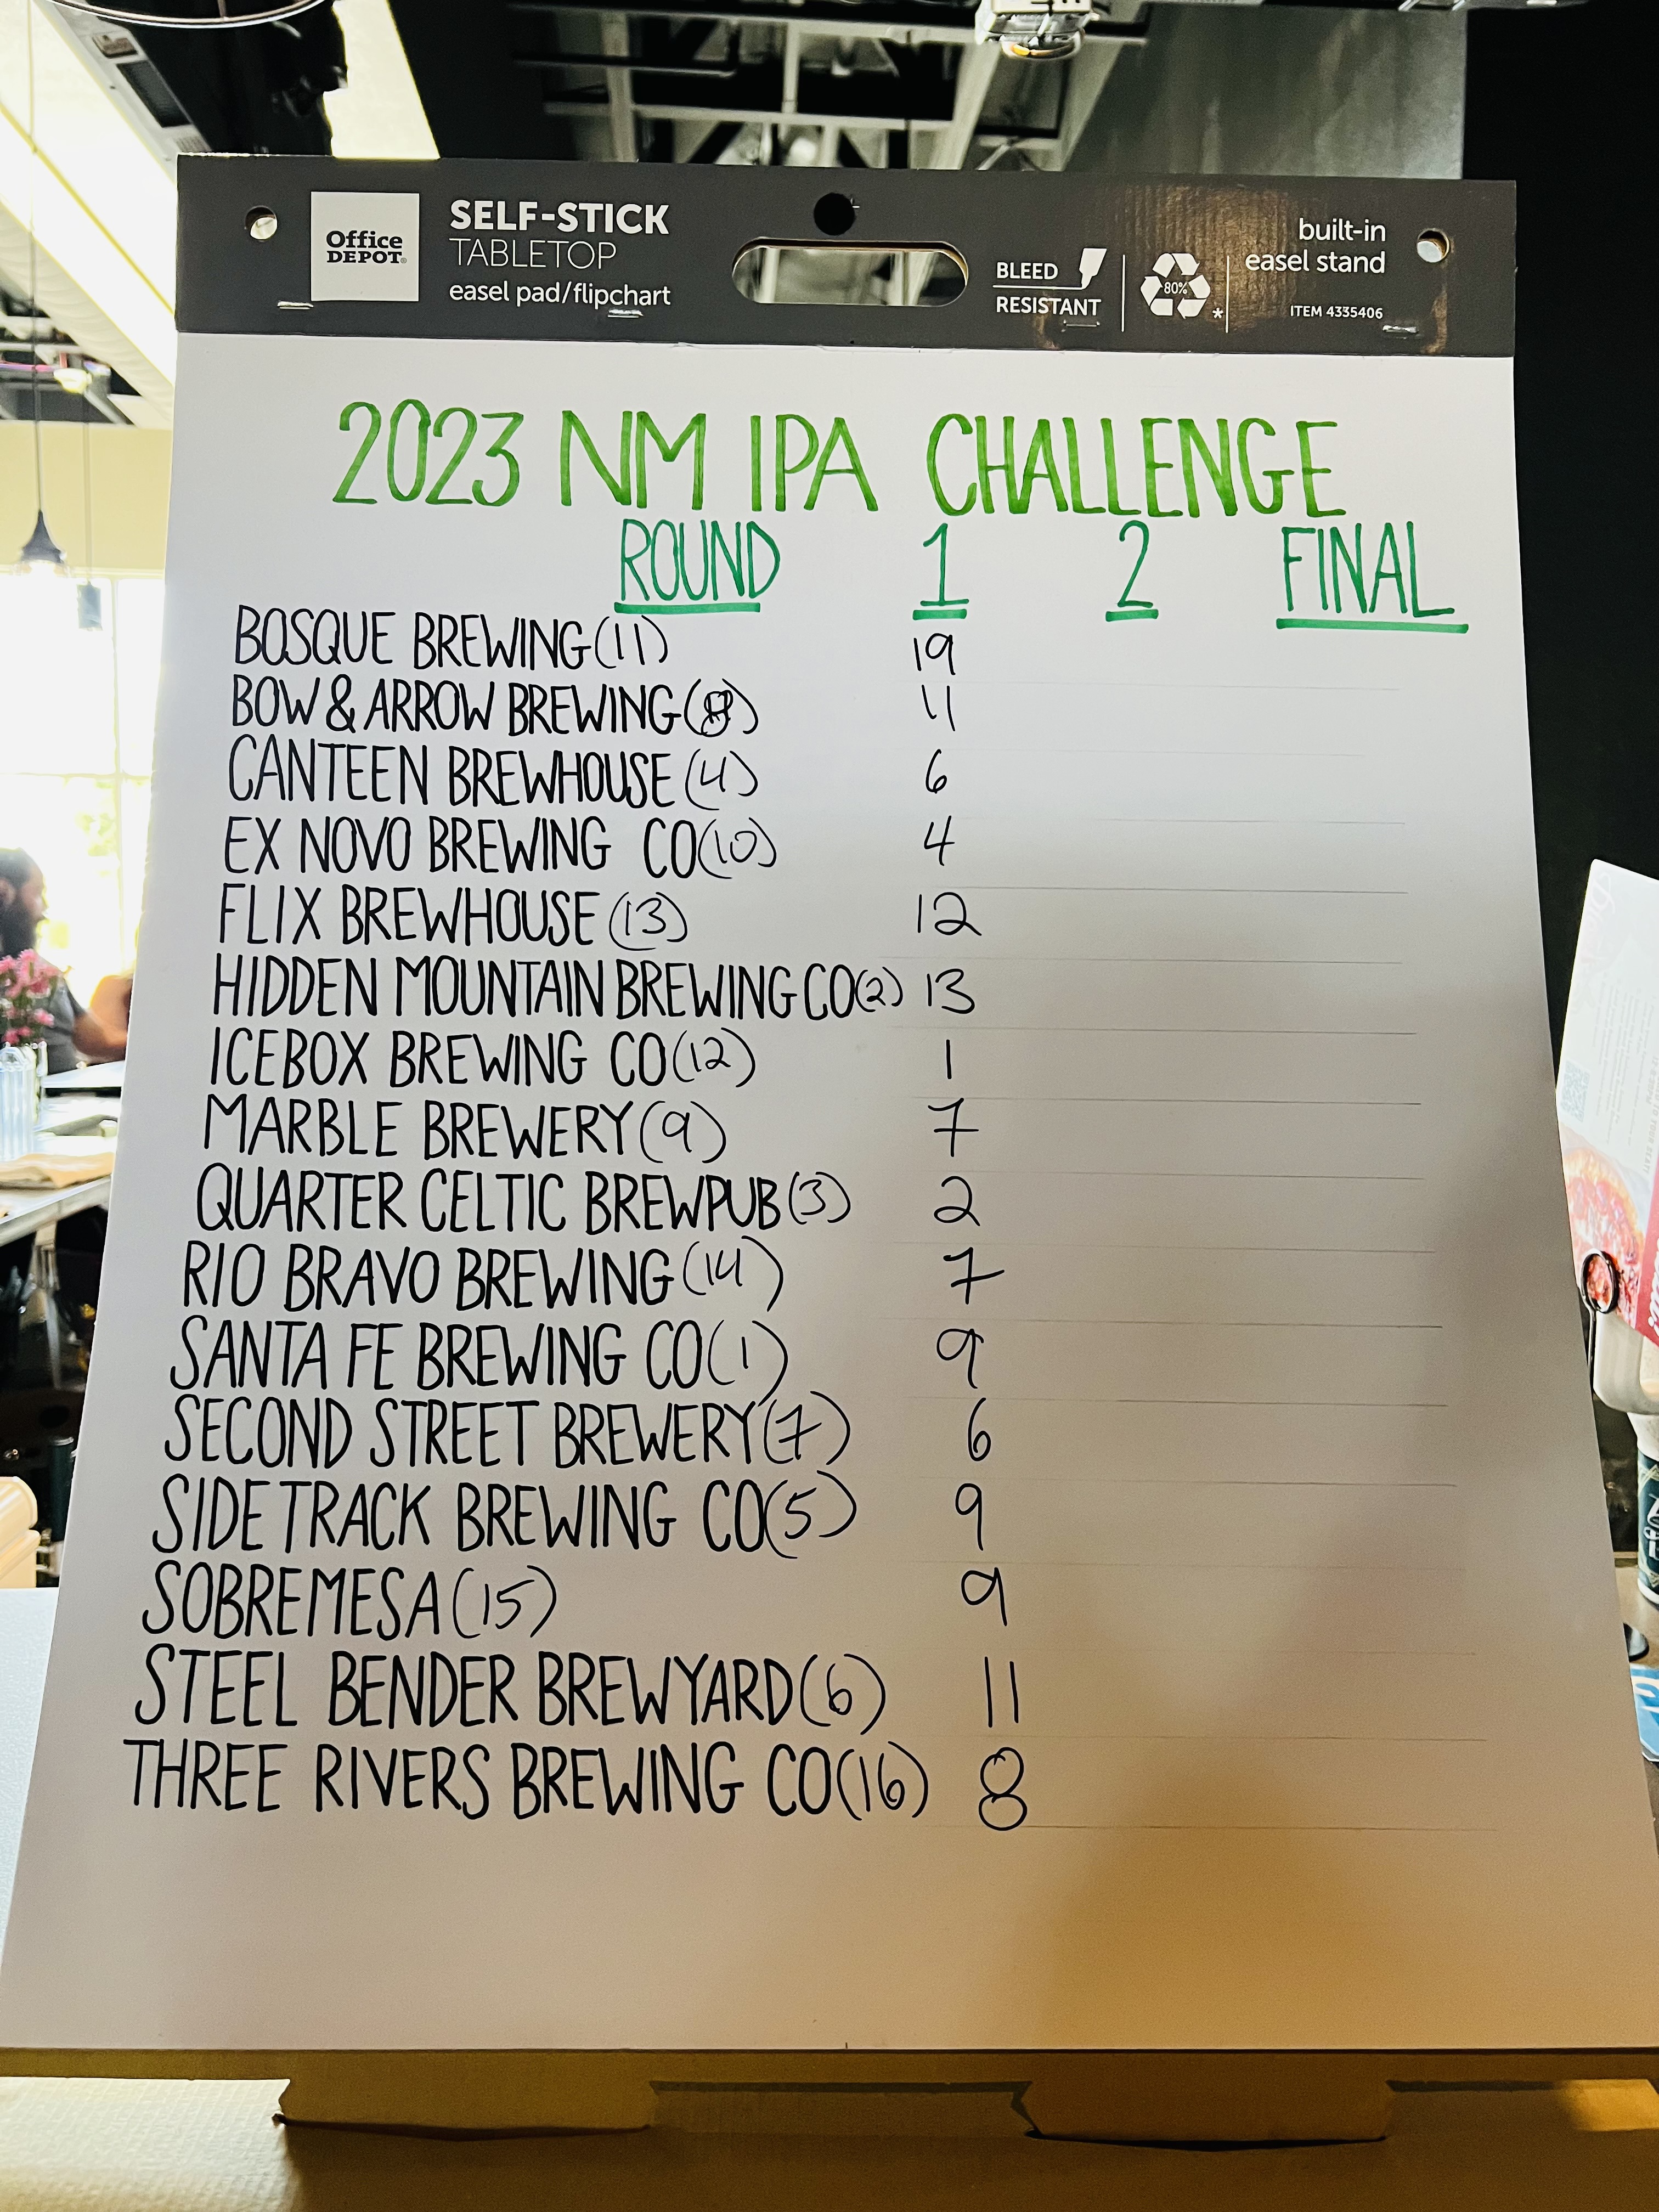 Office
DEPOT®
SELF-STICK
TABLETOP
easel pad/flipchart
BLEED
RESISTANT
80%
*
built-in
easel stand
ITEM 4335406
2023 NM IPA CHALLENGE
ROUND 1 2 FINAL
BOSQUE BREWING (11) 19
BOW & ARROW BREWING (8) 11
CANTEEN BREWHOUSE (4) 6
EX NOVO BREWING CO (10) 4
FLIX BREWHOUSE (13) 12
HIDDEN MOUNTAIN BREWING CO (2) 13
ICEBOX BREWING CO (12) 1
MARBLE BREWERY (9) 7
QUARTER CELTIC BREWPUB (3) 2
RIO BRAVO BREWING (14) 7
SANTA FE BREWING CO (1) 9
SECOND STREET BREWERY (7) 6
SIDETRACK BREWING CO (5) 9
SOBREMESA (15) 9
STEEL BENDER BREWYARD (6) 11
THREE RIVERS BREWING CO (16) 8